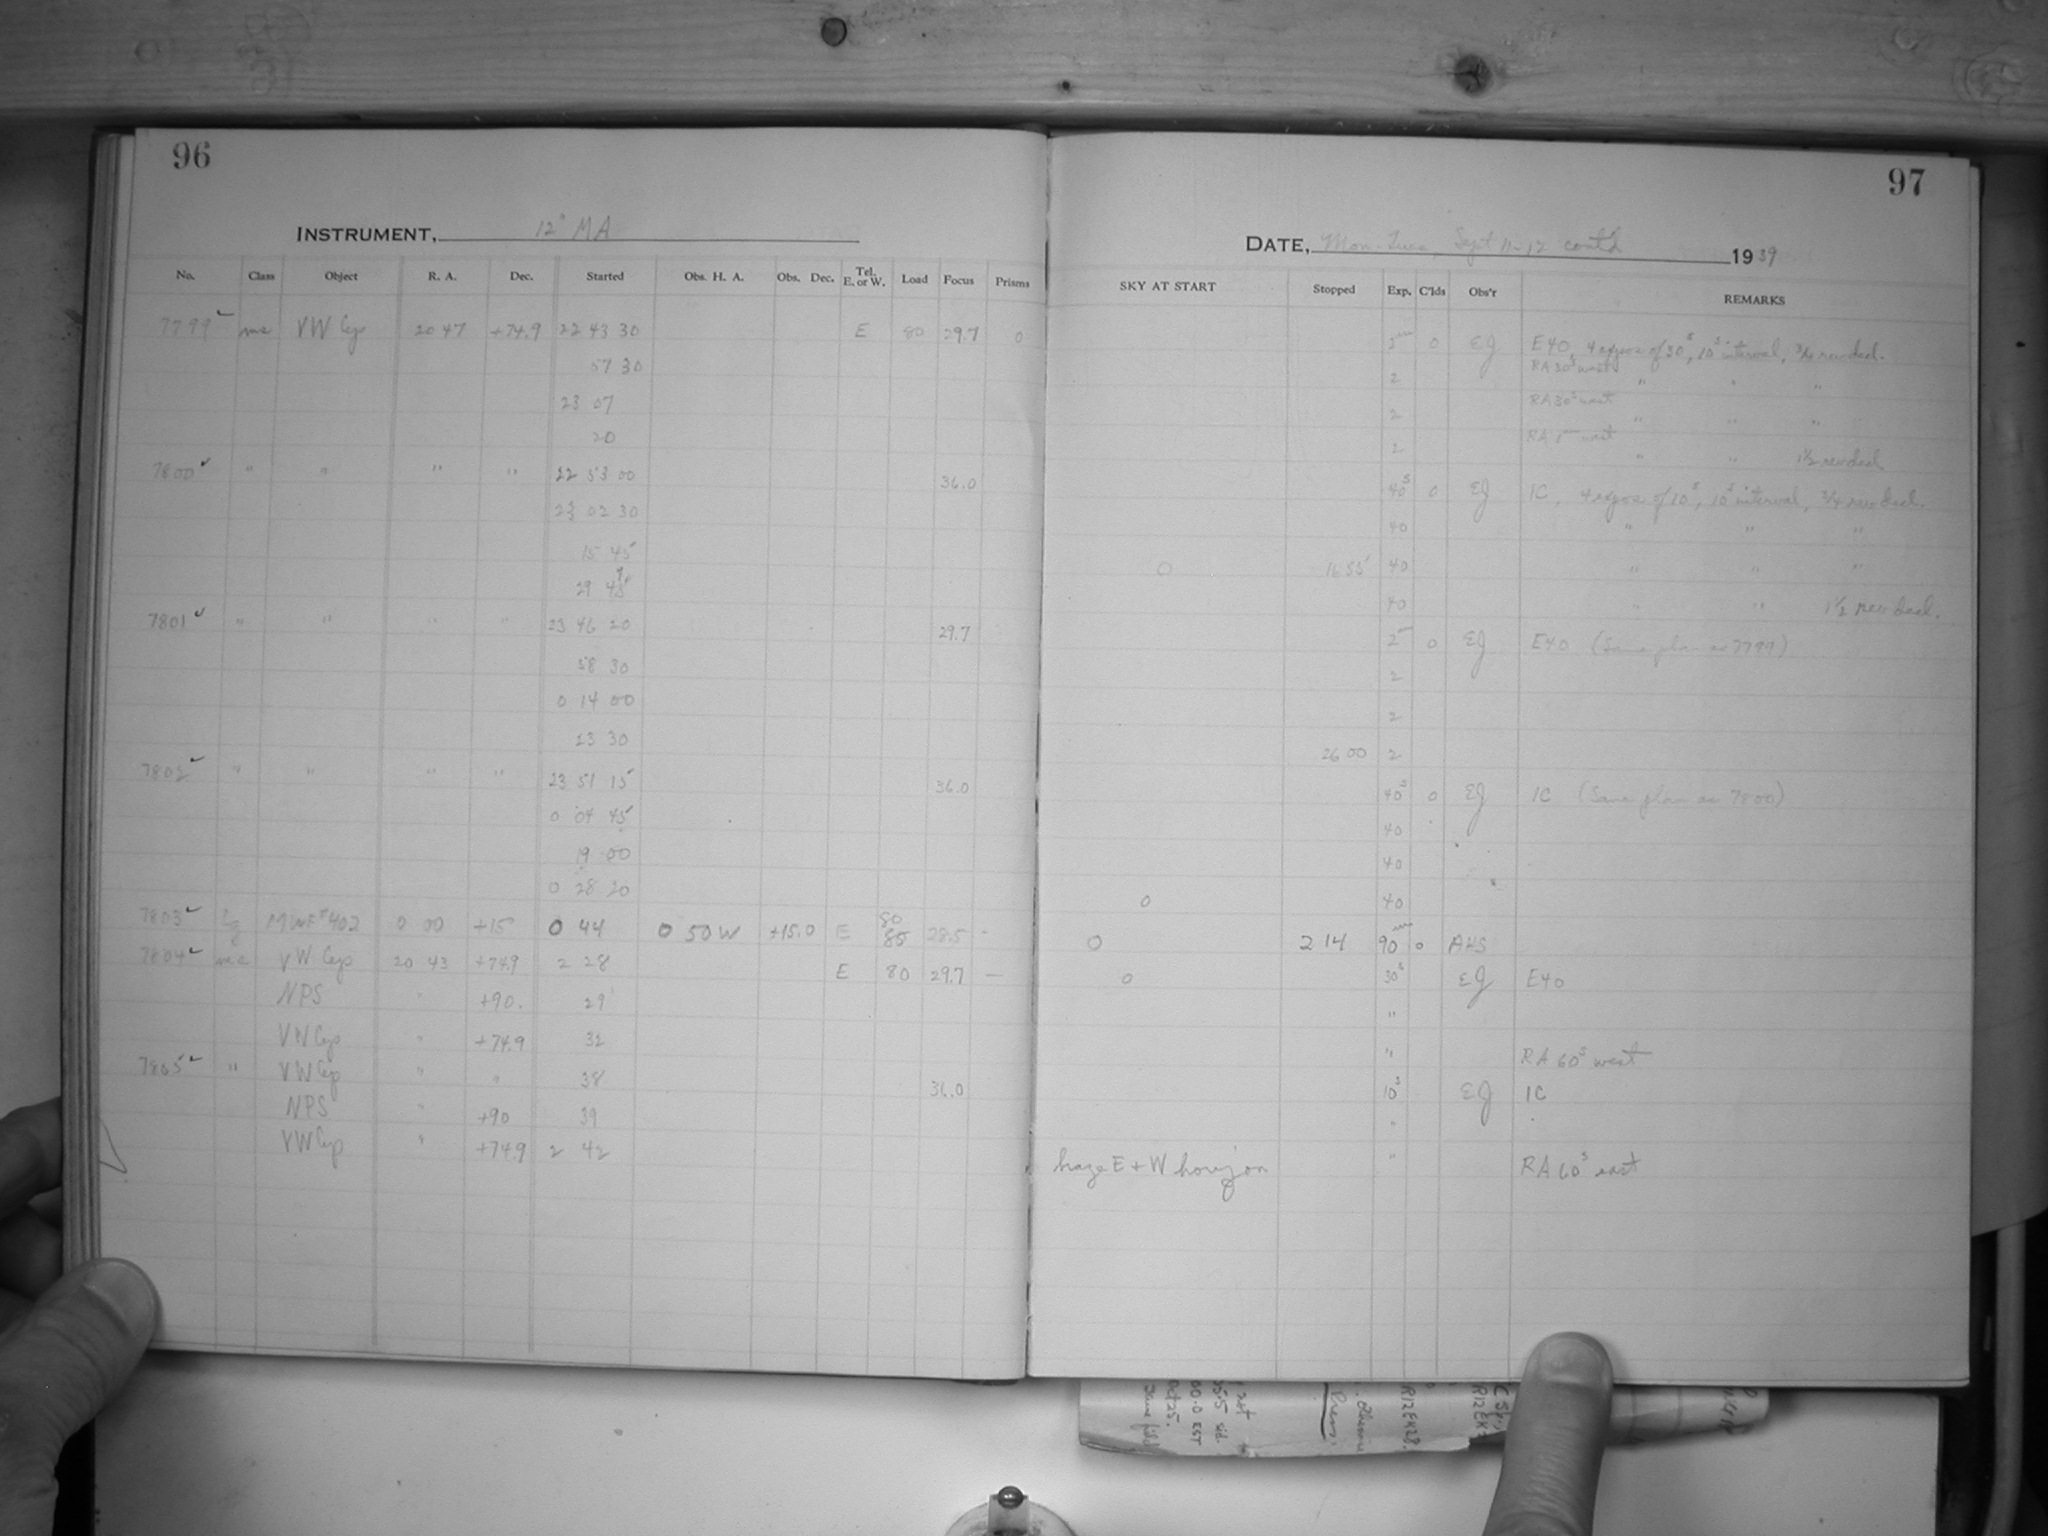 96
INSTRUMENT, 12" MA
No. Class Object R. A. Dec. Started Obs. H. A. Obs. Dec. Tel. E. or W. Load Focus Prisms
7799 ✓ mc VW Cep 20 47 +74.9 22 43 30 E 80 29.7 0
57 30
23 07
20
7800 ✓ " " " " 22 53 00 36.0
23 02 30
15 45
29 45
7801 ✓ " " " " 23 46 20 29.7
58 30
0 14 00
23 30
7802 ✓ " " " " 23 51 15 36.0
0 04 45
19 00
0 28 20
7803 ✓ MWF #402 0 00 +15 0 44 0 50 W +15.0 E 80 85 28.5 -
7804 ✓ mc VW Cep 20 43 +74.9 2 28 E 80 29.7 —
NPS " +90. 29
VW Cep " +74.9 32
7805 ✓ " VW Cep " " 38 36.0
NPS " +90 39
VW Cep " +74.9 2 42
97
DATE, Mon-Tues, Sept 11-12 cont'd 1939
SKY AT START Stopped Exp. C'lds Obs'r REMARKS
2m 0 EJ E40, 4 expos of 30s, 10s interval, 3/4 rev decl.
2 RA 30s west " " "
2 RA 30s west " " "
2 RA 1m west " " 1 1/2 rev decl
40s 0 EJ IC, 4 expos of 10s, 10s interval, 3/4 rev decl.
40 " " "
0 16 55 40 " " "
40 " " 1 1/2 rev decl.
2m 0 EJ E40 (Same plan as 7799)
2
2
26 00 2
40s 0 EJ IC (Same plan as 7800)
40
40
0 40
0 2 14 90m 0 AHS
0 30s EJ E40
"
" RA 60s west
10s EJ IC
"
haze E + W horizon " RA 60s east